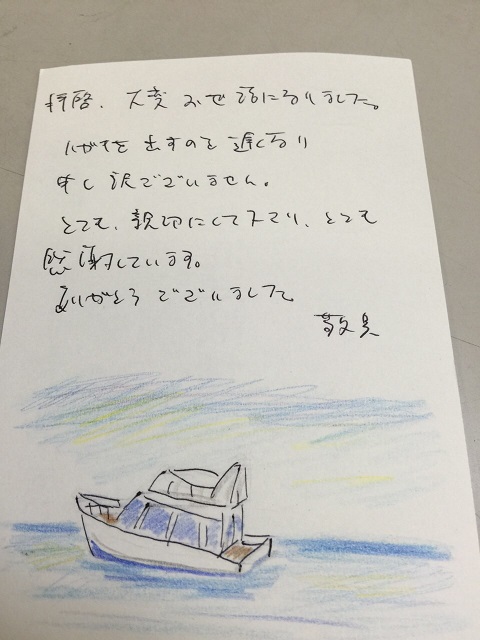 拝啓、大変お世話になりました。
ハガキを出すのも遅くなり
申し訳でございません。
とても、親切にして下さり、とても
感謝しています。
ありがとうでございました
敬具